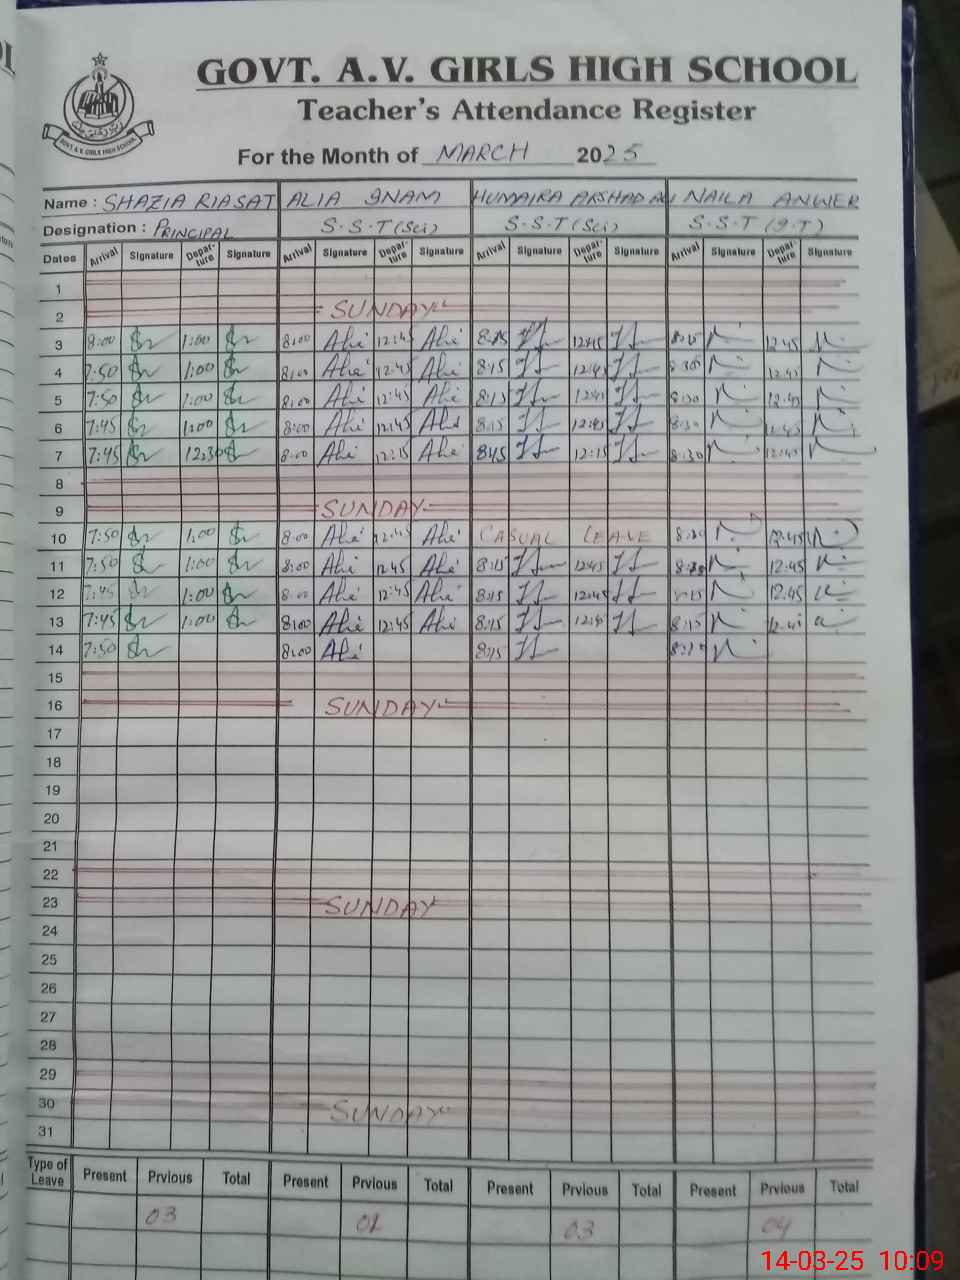 GOVT. A.V. GIRLS HIGH SCHOOL
Teacher's Attendance Register
GOVT. A.V. GIRLS HIGH SCHOOL
For the Month of MARCH 2025
Name : SHAZIA RIASAT ALIA INAM HUMAIRA ARSHAD NAILA ANWER
Designation : PRINCIPAL S.S.T (Sci) S.S.T (Sci) S.S.T (I.T)
Dates Arrival Signature Depar-ture Signature Arrival Signature Depar-ture Signature Arrival Signature Depar-ture Signature Arrival Signature Depar-ture Signature
1
2 SUNDAY
3 8:00 1:00 8:00 Alia 12:45 Alia 8:15 12:45 12:45
4 7:50 1:00 8:00 Alia 12:45 Alia 8:15 12:45 12:45
5 7:50 1:00 8:00 Alia 12:45 Alia 8:15 12:45 8:30 12:45
6 7:45 1:00 8:00 Alia 12:45 Alia 8:15 12:45 8:30 12:45
7 7:45 12:30 8:00 Alia 12:15 Alia 8:15 12:15 8:30 12:45
8
9 SUNDAY
10 7:50 1:00 8:00 Alia 12:45 Alia CASUAL LEAVE 12:45
11 7:50 1:00 8:00 Alia 12:45 Alia 8:15 12:45 12:45
12 7:45 1:00 8:00 Alia 12:45 Alia 8:15 12:45 12:45
13 7:45 1:00 8:00 Alia 12:45 Alia 8:15 12:45 8:15 12:45
14 7:50 8:00 Alia 8:15
15
16 SUNDAY
17
18
19
20
21
22
23 SUNDAY
24
25
26
27
28
29
30 SUNDAY
31
Type of Leave Present Prvious Total Present Prvious Total Present Prvious Total Present Prvious Total
03 03 04
14-03-25 10:09